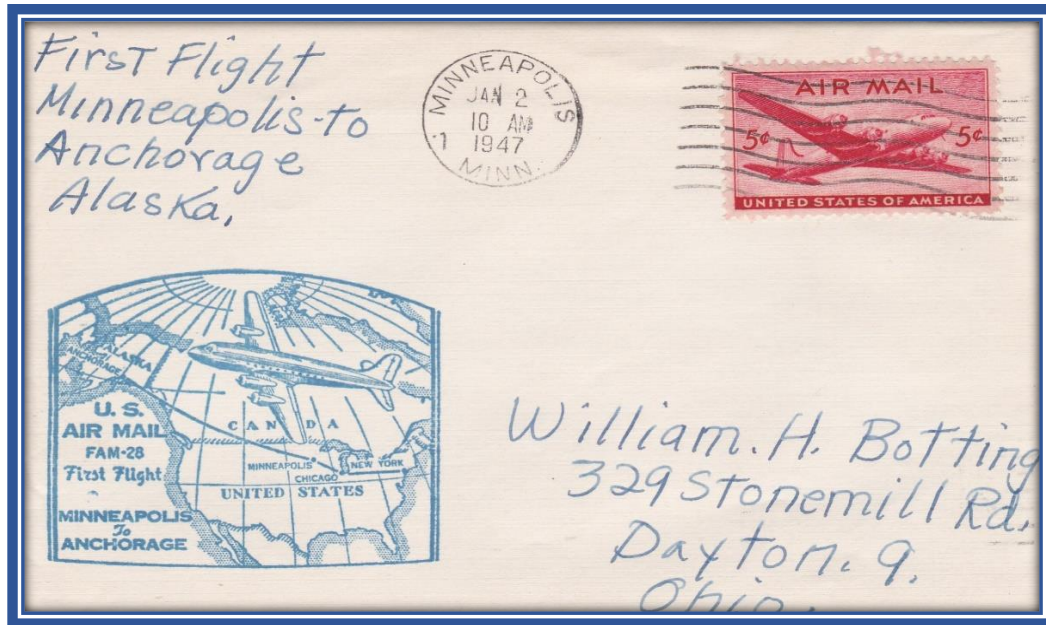 First Flight
Minneapolis-to
Anchorage
Alaska,
MINNEAPOLIS
JAN 2
10 AM
1947
1
MINN.
AIR MAIL
5¢ 5¢
UNITED STATES OF AMERICA
ALASKA
ANCHORAGE
U. S.
AIR MAIL
FAM-28
First Flight
MINNEAPOLIS
To
ANCHORAGE
CANADA
MINNEAPOLIS
NEW YORK
CHICAGO
UNITED STATES
William. H. Botting
329 Stonemill Rd.
Dayton. 9.
Ohio.